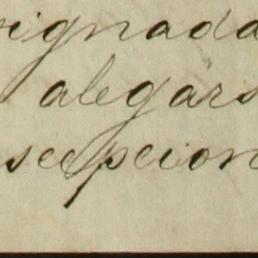 rignada
alegars
scepcion